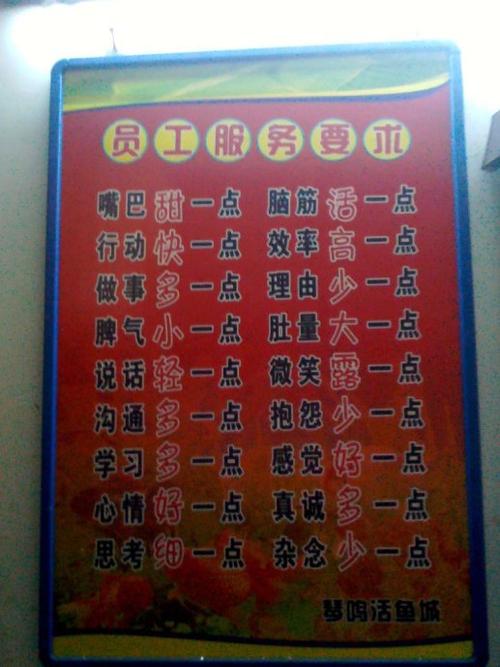 员工服务要求
嘴巴甜一点 脑筋活一点
行动快一点 效率高一点
做事多一点 理由少一点
脾气小一点 肚量大一点
说话轻一点 微笑露一点
沟通多一点 抱怨少一点
学习多一点 感觉好一点
心情好一点 真诚多一点
思考细一点 杂念少一点
琴鸣活鱼城